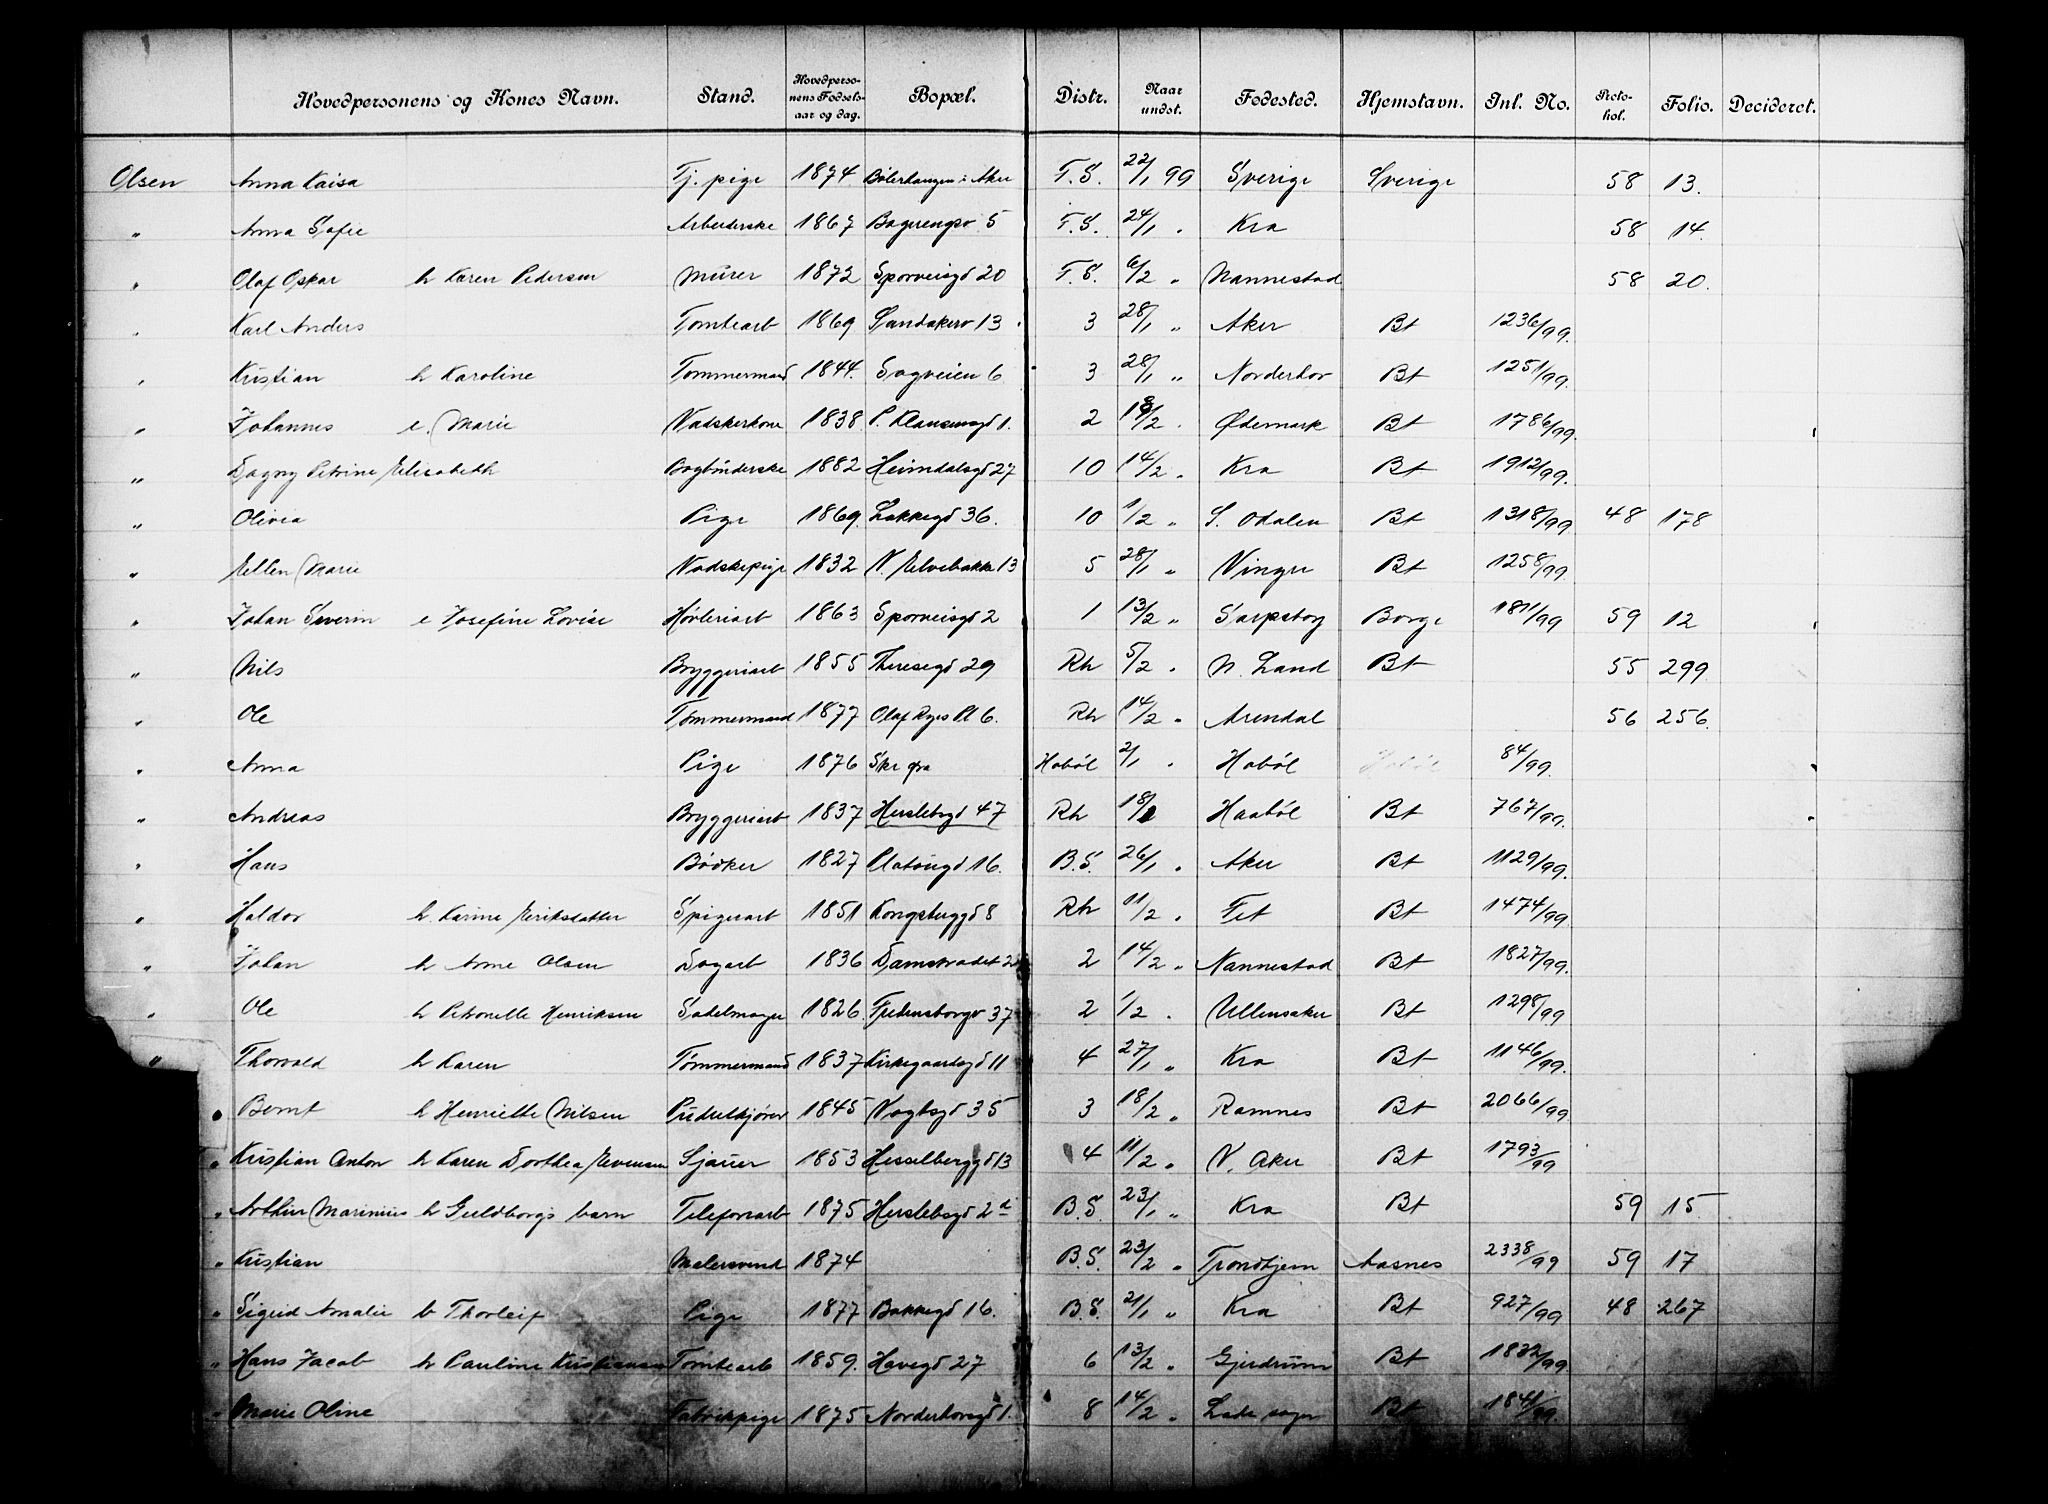 Hovedpersonens og Kones Navn. Stand. Hovedpersonens Fødselsaar og dag. Bopæl. Distr. Naar undst. Fødested. Hjemstavn. Inl. No. Protokol. Folio. Decideret.
Olsen Anna Kaisa Tj. pige 1874 Bölerhaugen i Aker F.S. 22/1 99 Sverige Sverige 58 13.
" Anna Sofie Arbeiderske 1867 5 F.S. 24/1 " Kra 58 14.
" Olaf Oskar h Karen Pedersen Murer 1872 Sporveisgd 20 F.S. 6/2 " Nannestad 58 20.
" Karl Anders Tomtearb 1869 Sandakerv 13 3 28/1 " Aker Bt 1236/99.
" Kristian h Karoline Tømmermand 1844. Sagveien 6 3 28/1 " Norderhov Bt 1251/99.
" Johannes e. Marie Vadskerkone 1838 P. Clausensgd 1. 2 /2 " Ødemark Bt 1786/99.
" Dagny Petrine Elisabeth Bogbinderske 1882 Heimdalsgd 27 10 14/2 " Kra Bt 1912/99.
" Olivia Pige 1869. Lakkegd 36. 10 1/2 " S. Odalen Bt 1318/99 48 178
" Ellen Marie Vadskepige 1832 N. Elvebakke 13 5 28/1 " Vinger Bt 1258/99
" Johan Severin e Josefine Lovise Høvleriarb 1863 Sporveisgd 2 1 13/2 " Sarpsborg Borge 1811/99 59 12
" Nils Bryggeriarb 1855 Theresegd 29 Rh 5/2 " N. Land Bt 55 299.
" Ole Tømmermand 1877 Olaf Ryes Pl 6. Rh 14/2 " Arendal 56 256.
" Anna Pige 1876 Skr fra Haböl 2/1 " Haböl Haböl 84/99.
" Andreas Bryggeriarb 1837 Herslebsgd 47 Rh 18/ Haaböl Bt 767/99.
" Hans Bödker 1827 Platougd 16. B.S. 26/1 " Aker Bt 1129/99.
" Haldor h. Karine Eriksdatter Spigerarb 1851 Kongsberggd 8 Rh 11/2 " Fet Bt 1474/99.
" Johan h Anne Olsen Dagarb 1836 Damstrædet 2 2 14/2 " Nannestad Bt 1827/99.
" Ole h Petronelle Henriksen Sadelmager 1826 Fredensborgv 37 2 1/2 " Ullensaker Bt 1298/99
" Thorvald h Karen Tømmermand 1837 Kirkegaardsgd 11 4 27/1 " Kra Bt 1146/99.
" Bernt h Henriette Nilsen 1845 Vogtsgd 35 3 18/2 " Ramnes Bt 2066/99
" Kristian Anton h Karen Dorthea Evensen Sjauer 1853 Hesselberggd 13 4 11/2 " V. Aker Bt 1793/99
" Arthur Marinius h Guldborgs barn Telefonarb 1875 Herslebsgd 2d B.S. 23/1 " Kra Bt 59 15.
" Kristian Malersvend 1874 B.S. 23/2 " Trondhjem Aasnes 2338/99 59 17
" Sigrid Amalie b Thorleif Pige 1877 Bakkegd 16. B.S. 21/1 " Kra Bt 927/99 48 267
" Hans Jacob h Pauline Kristiansen Tomtearb 1859. Havegd 27 6 13/2 " Gjerdrum Bt 1832/99.
" Marie Oline Fabrikpige 1875 Norderhovsgd 1. 8 14/2 " Bt 1841/99.